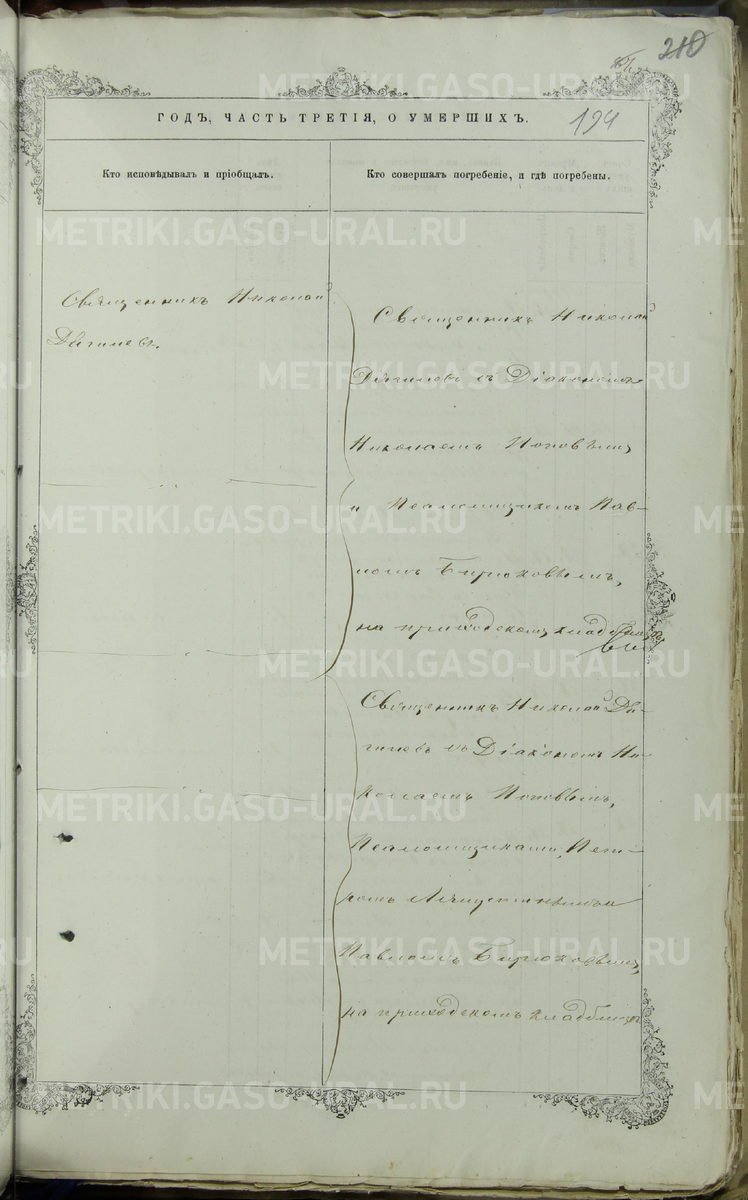 210
194
ГОДЪ, ЧАСТЬ ТРЕТІЯ, О УМЕРШИХЪ.
Кто исповѣдывалъ и пріобщалъ.
Кто совершалъ погребеніе, и гдѣ погребены.
Священникъ Николай
Дягилевъ.
Священникъ Николай
Дягилевъ съ Діакономъ
Николаемъ Поповымъ
и Псаломщикомъ Пав-
ломъ Бирюковымъ,
на приходскомъ кладбищѣ
Священникъ Николай Дя-
гилевъ съ Діакономъ Ни-
колаемъ Поповымъ,
Псаломщиками, Пет-
ромъ
Павломъ Бирюковымъ,
на приходскомъ кладбищѣ
METRIKI.GASO-URAL.RU